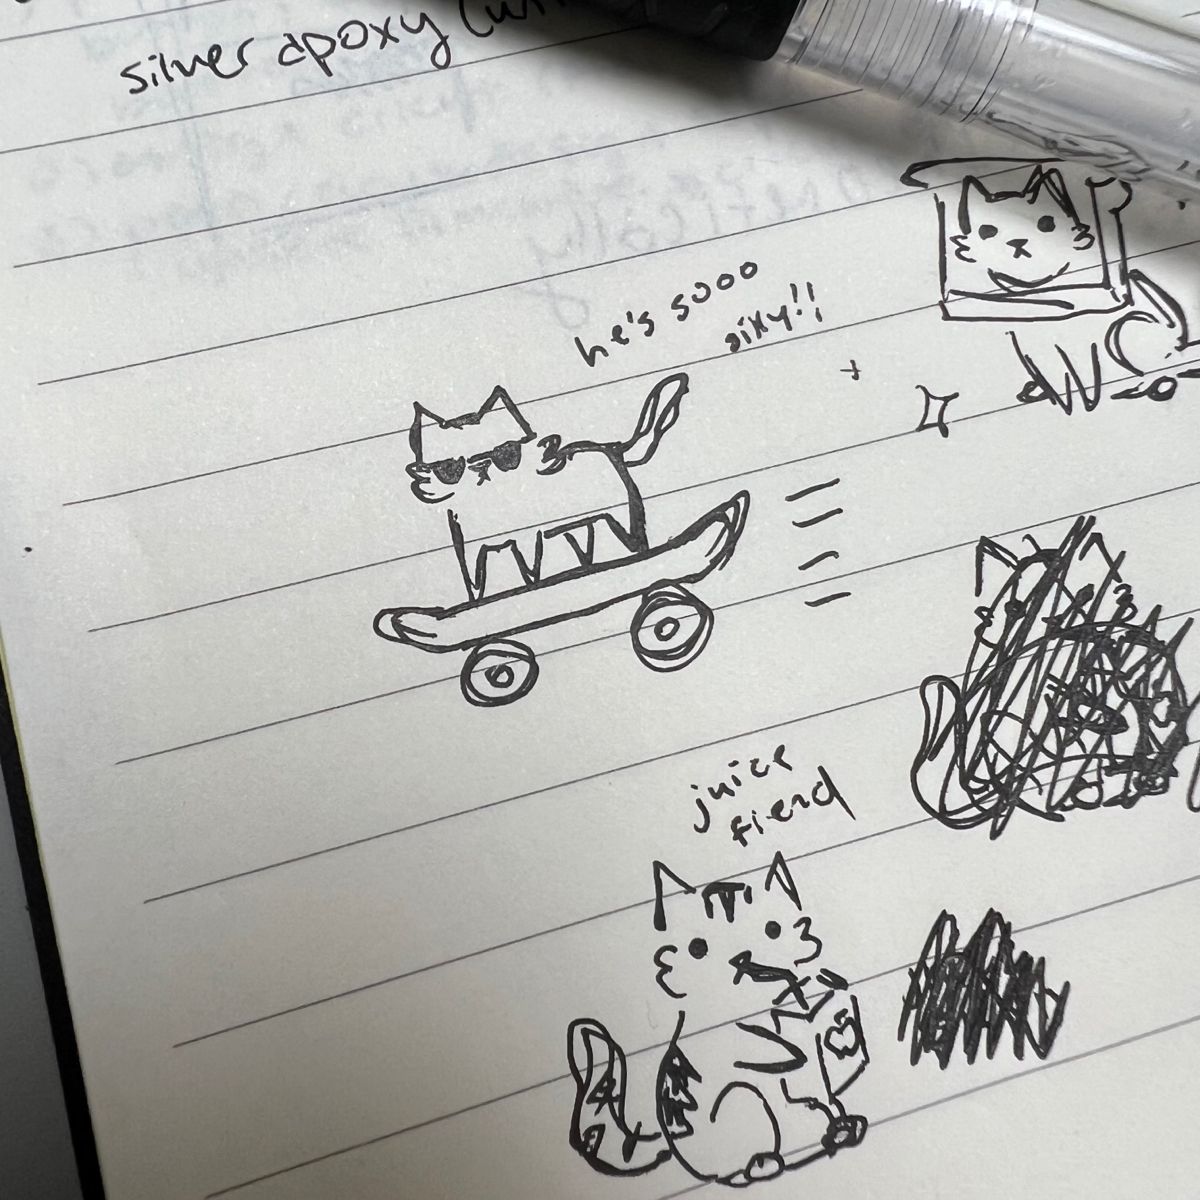 silver epoxy
he's sooo
juice
fiend